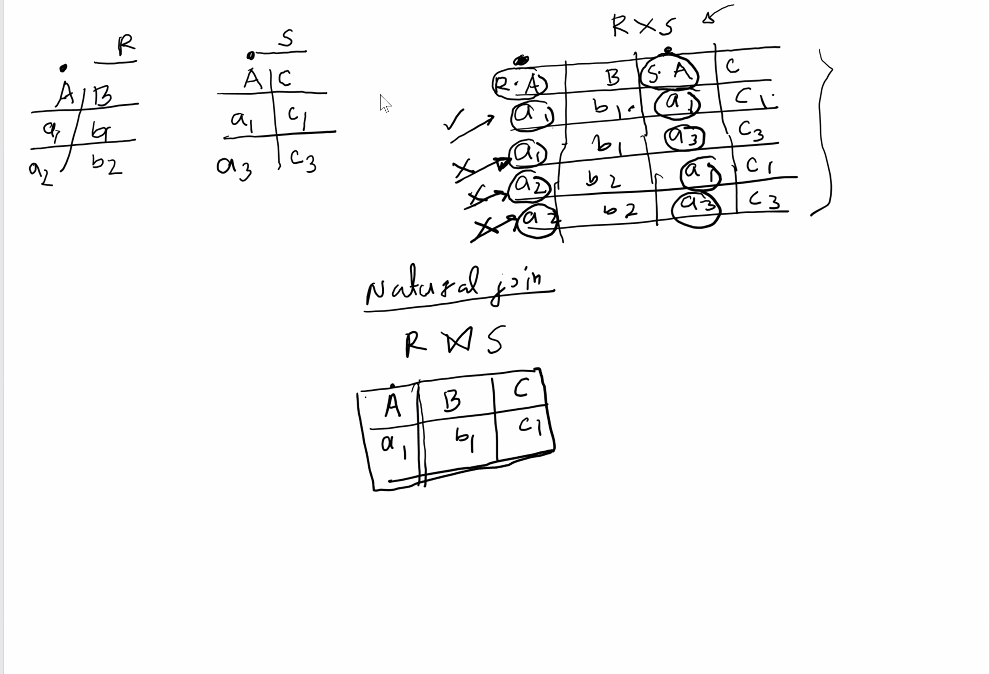 R
A B
a1 b1
a2 b2
S
A C
a1 c1
a3 c3
R×S
R.A B S.A C
a1 b1 a1 c1
a1 b1 a3 c3
a2 b2 a1 c1
a2 b2 a3 c3
Natural join
R ⋈ S
A B C
a1 b1 c1